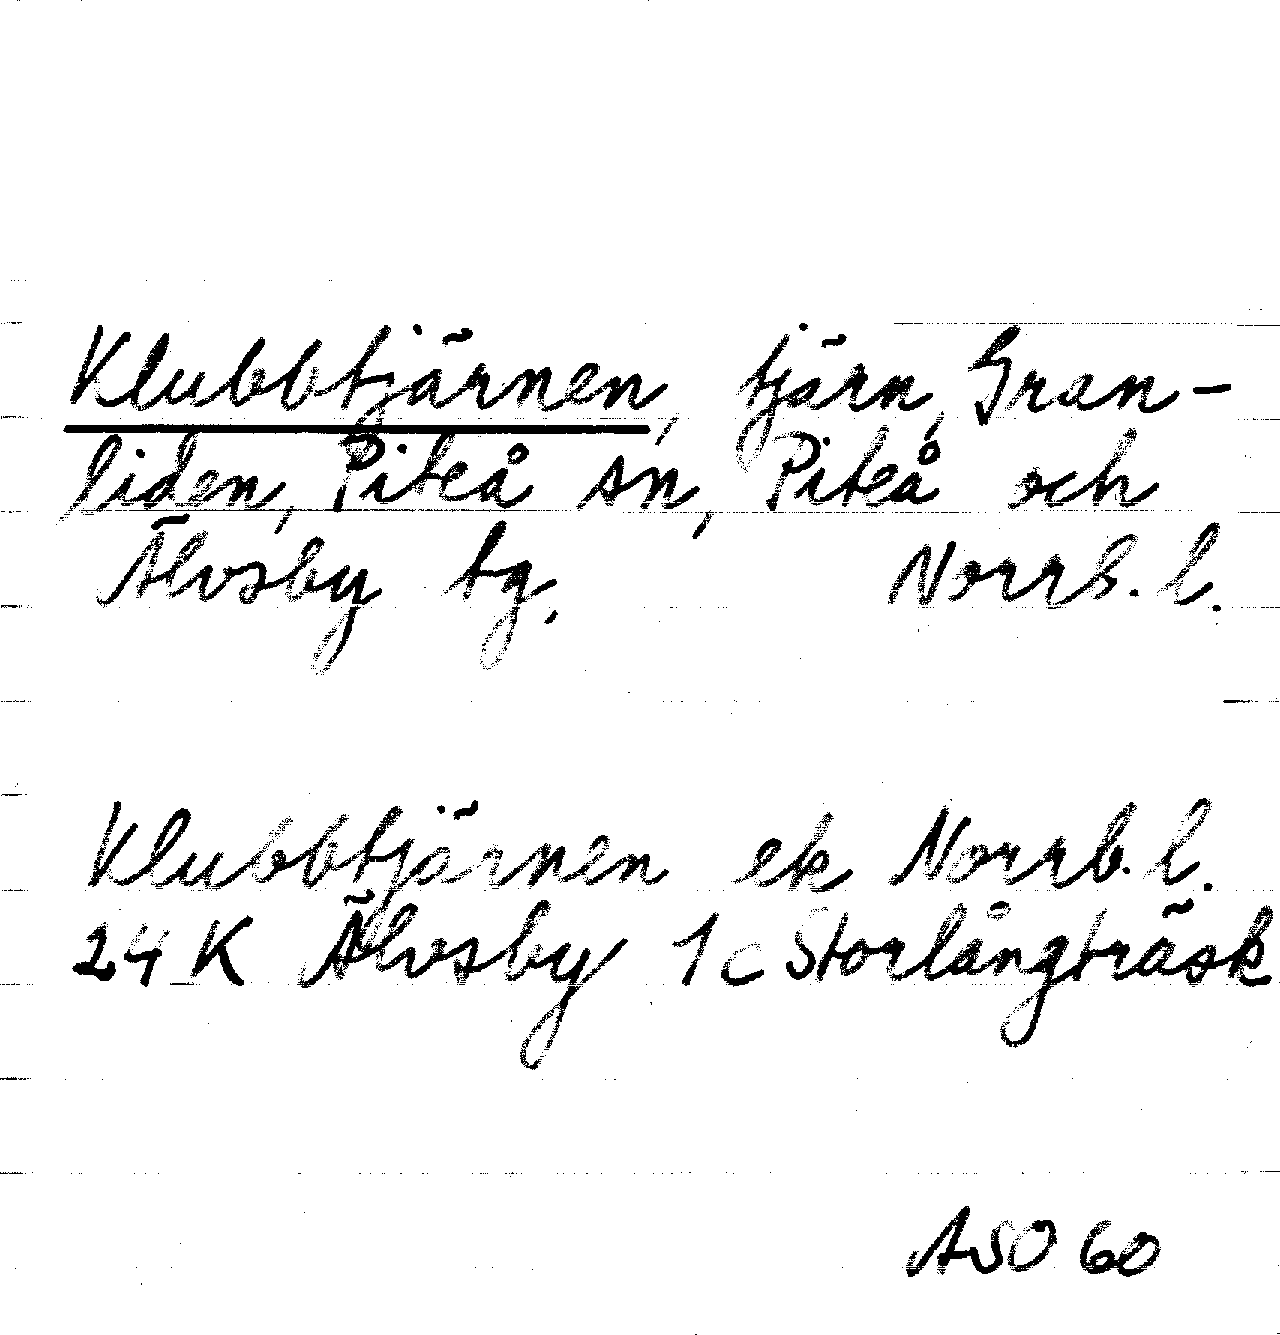 Klubbtjärnen, tjärn, Gran-
liden, Piteå sn, Piteå och
Älvsby tg. Norrb. l.
Klubbtjärnen ek Norrb. l.
24 K Älvsby 1c Storlångträsk
ASO 60